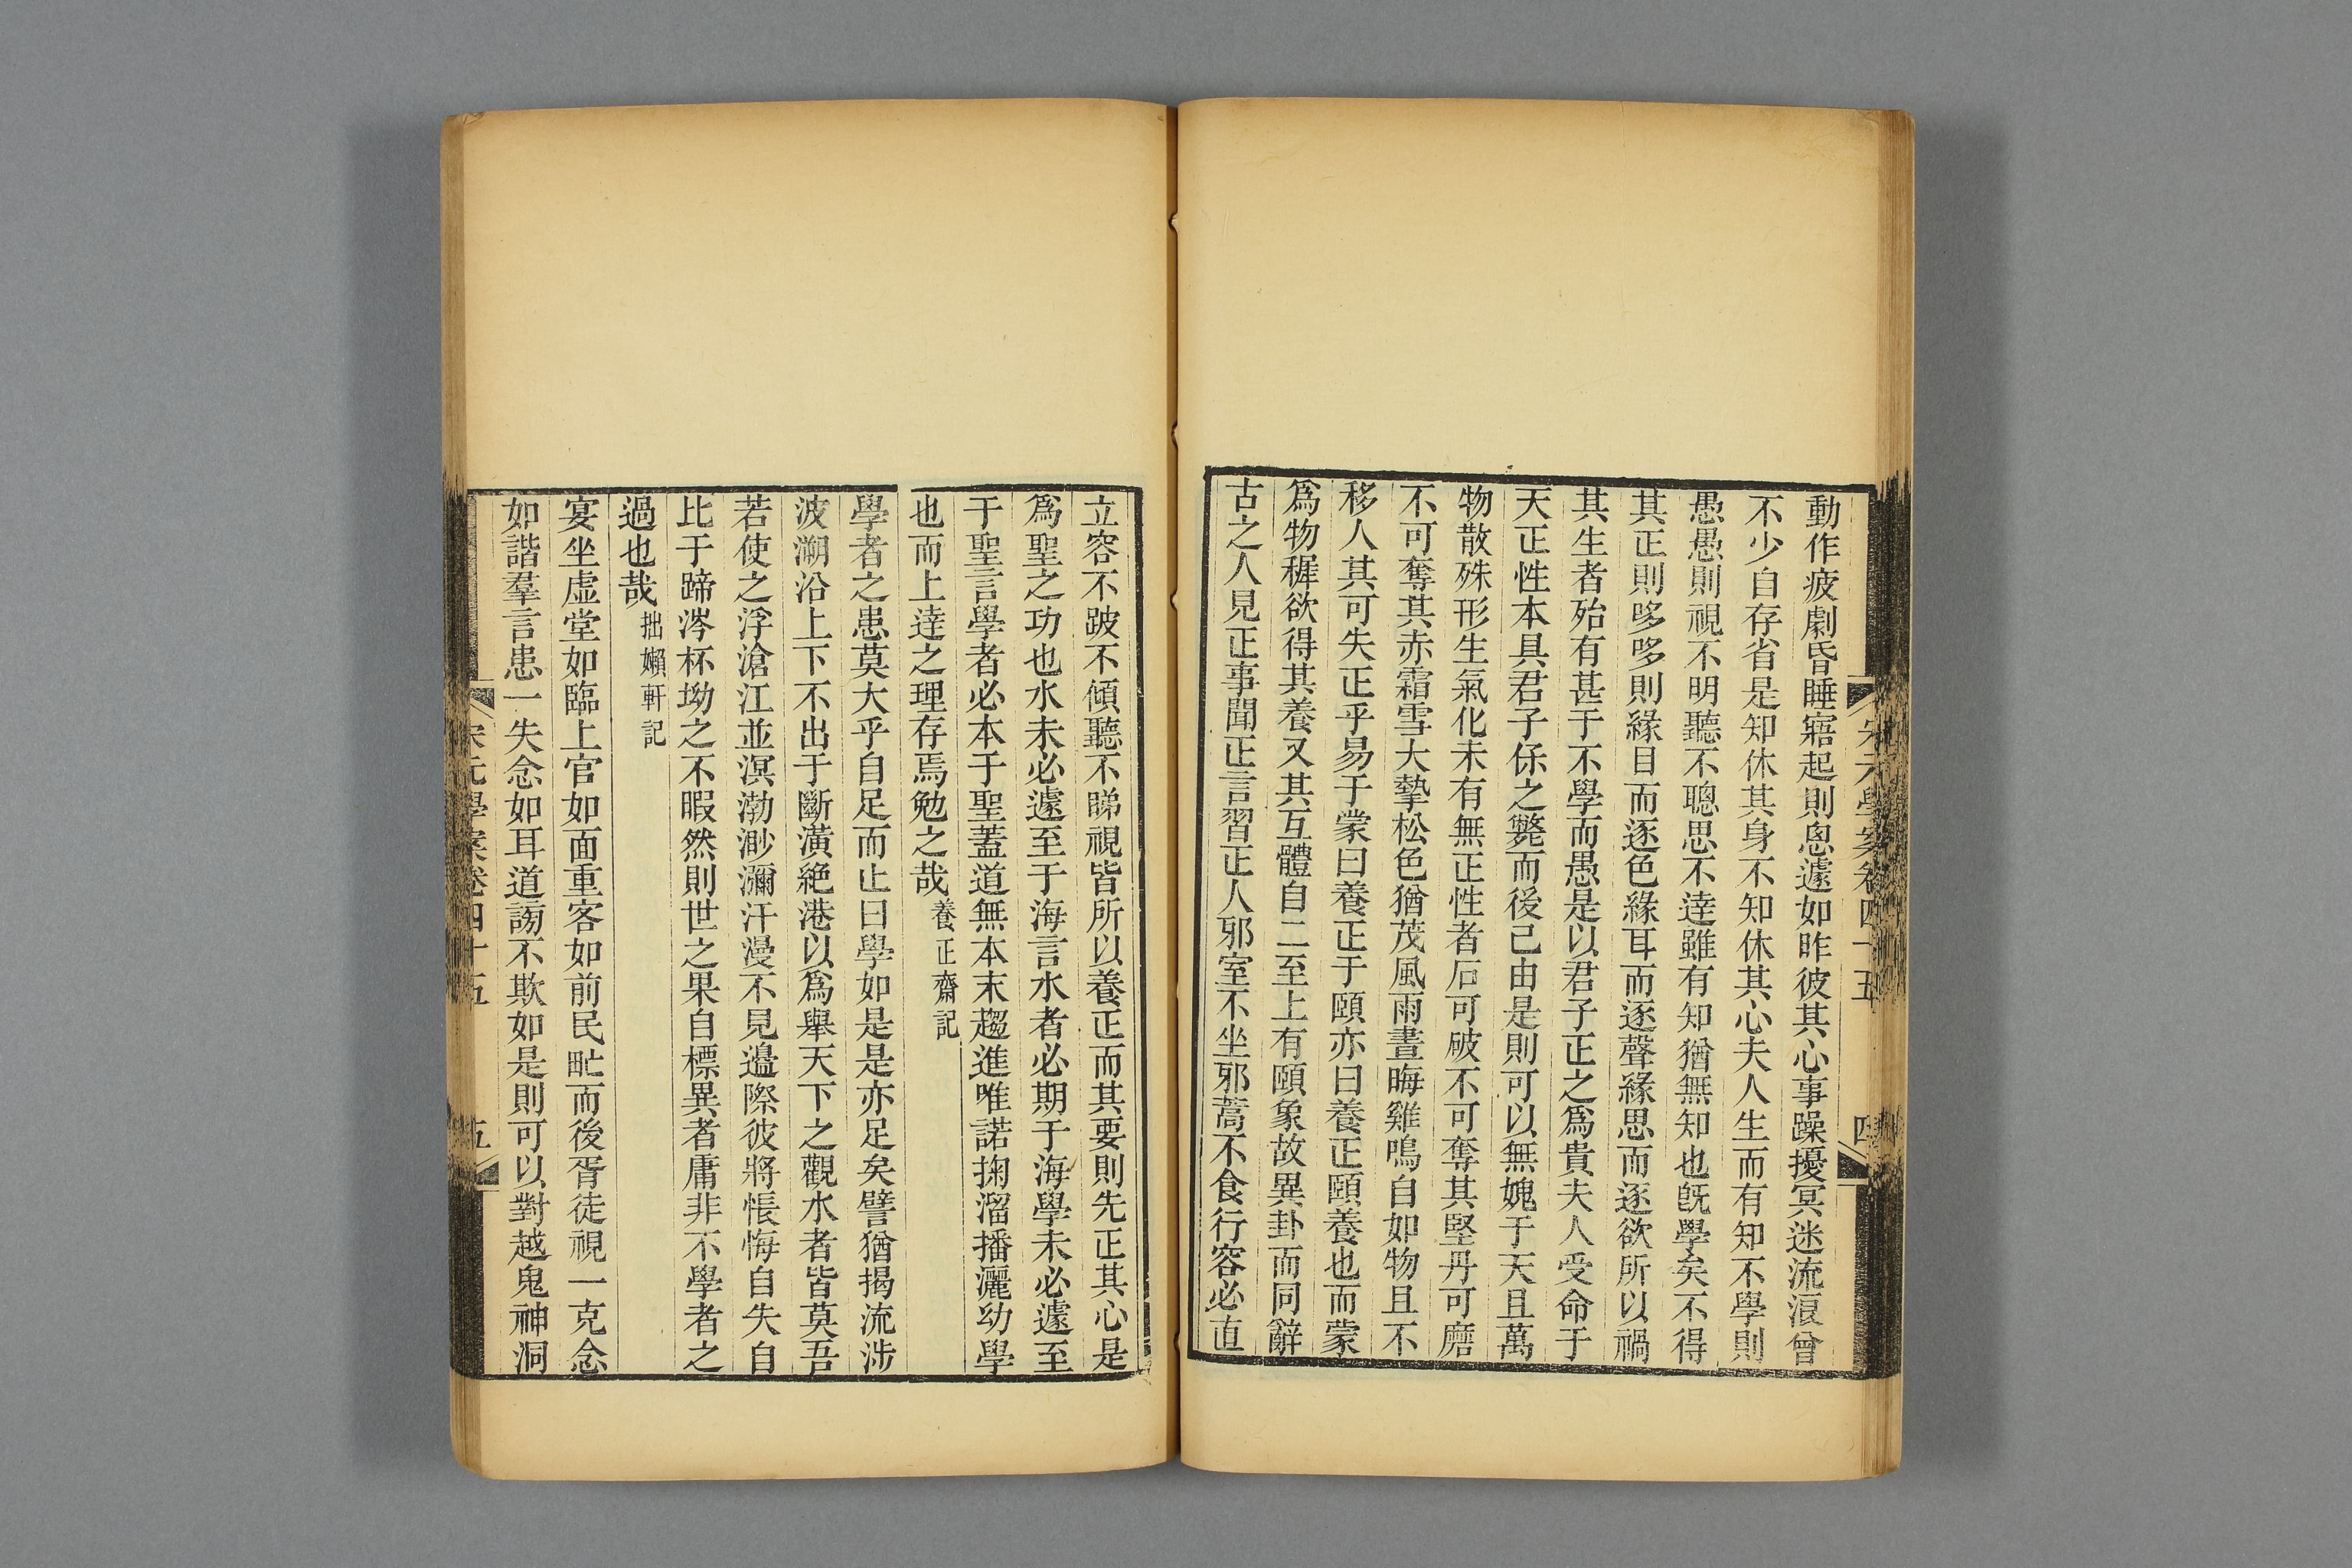 宋元學案卷四十五
四
動作疲劇昏睡寤起則悤遽如昨彼其心事躁擾冥迷流湎曾
不少自存省是知休其身不知休其心夫人生而有知不學則
愚愚則視不明聽不聰思不達雖有知猶無知也旣學矣不得
其正則哆哆則緣目而逐色緣耳而逐聲緣思而逐欲所以禍
其生者殆有甚于不學而愚是以君子正之爲貴夫人受命于
天正性本具君子係之斃而後己由是則可以無媿于天且萬
物散殊形生氣化未有無正性者石可破不可奪其堅丹可磨
不可奪其赤霜雪大摯松色猶茂風雨晝晦雞鳴自如物且不
移人其可失正乎易于蒙曰養正于頤亦曰養正頤養也而蒙
爲物穉欲得其養又其互體自二至上有頤象故異卦而同辭
古之人見正事聞正言習正人邪室不坐邪蒿不食行容必直
立容不跛不傾聽不睇視皆所以養正而其要則先正其心是
爲聖之功也水未必遽至于海言水者必期于海學未必遽至
于聖言學者必本于聖蓋道無本末趨進唯諾掬溜播灑幼學
也而上達之理存焉勉之哉養正齋記
學者之患莫大乎自足而止曰學如是是亦足矣譬猶揭流涉
波溯沿上下不出于斷潢絶港以爲舉天下之觀水者皆莫吾
若使之浮滄江並溟渤渺瀰汗漫不見邊際彼將悵悔自失自
比于蹄涔杯坳之不暇然則世之果自標異者庸非不學者之
過也哉拙嬾軒記
宴坐虚堂如臨上官如面重客如前民甿而後胥徒視一克念
如諧羣言患一失念如耳道謗不欺如是則可以對越鬼神洞
宋元學案卷四十五
五